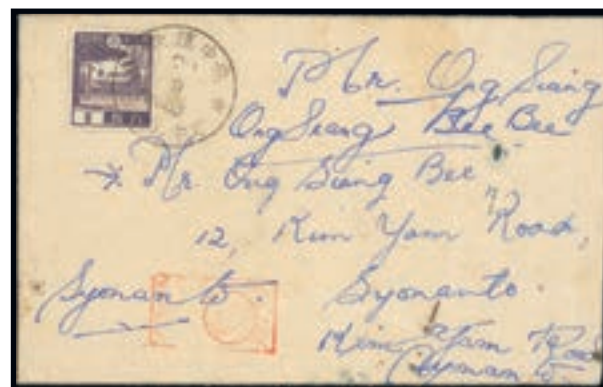 Mr. Ong Siang
Ong Siang Bee Bee
Mr. Ong Siang Bee
12, Kim Yam Road,
Syonanto. Syonanto.
Kim Yam Road
Syonanto